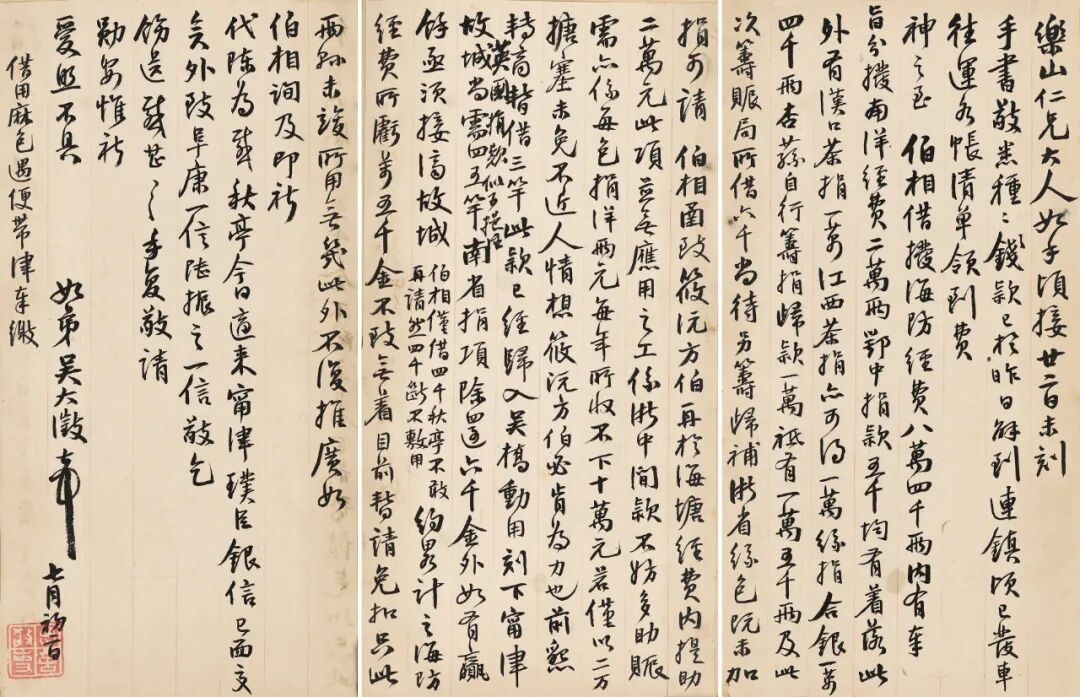 樂山仁兄大人如手頃接廿二日未刻
手書敬悉種種錢款已於昨日解到連鎮頃已發車
往運各帳清單領到費
神之至 伯相借撥海防經費八萬四千兩內有奉
旨分撥南洋經費二萬兩鄂中捐款五千均有着落此
外有漢口茶捐一萬江西茶捐亦可得一萬緣指合銀一萬
四千兩杏蓀自行籌捐歸款一萬祗有一萬五千兩及此
次籌賑局所借六千尚待另籌歸補浙省緣包既未加
捐可請 伯相函致筱沅方伯再於海塘經費內提助
二萬元此項並無應用之工係浙中閒款不妨多助賑
需亦係每包捐洋兩元每年所收不下十萬元若僅以二万
搪塞未免不近人情想筱沅方伯必肯為力也前懇
轉商暫借三竿此款已經歸入吴橋動用刻下甯津
英國捐款似可挹注
故城尚需四五竿南省捐項除四還六千金外如有贏
餘亟須接濟故城
伯相僅借四千秋亭不敢
再請然四千斷不敷用
約畧計之海防
經費所虧萬五千金不致無着目前暫請免扣只此
兩縣未竣所用無幾此外不復推廣如
伯相詢及即祈
代陳為感秋亭今日適來甯津璞臣銀信已面交
矣外致阜康一信陆振之一信敬乞
飭送感甚感甚手复敬請
勛安惟祈
愛照不具
如弟吴大澂頓首
七月初二日
借用麻包遇便帶津奉繳